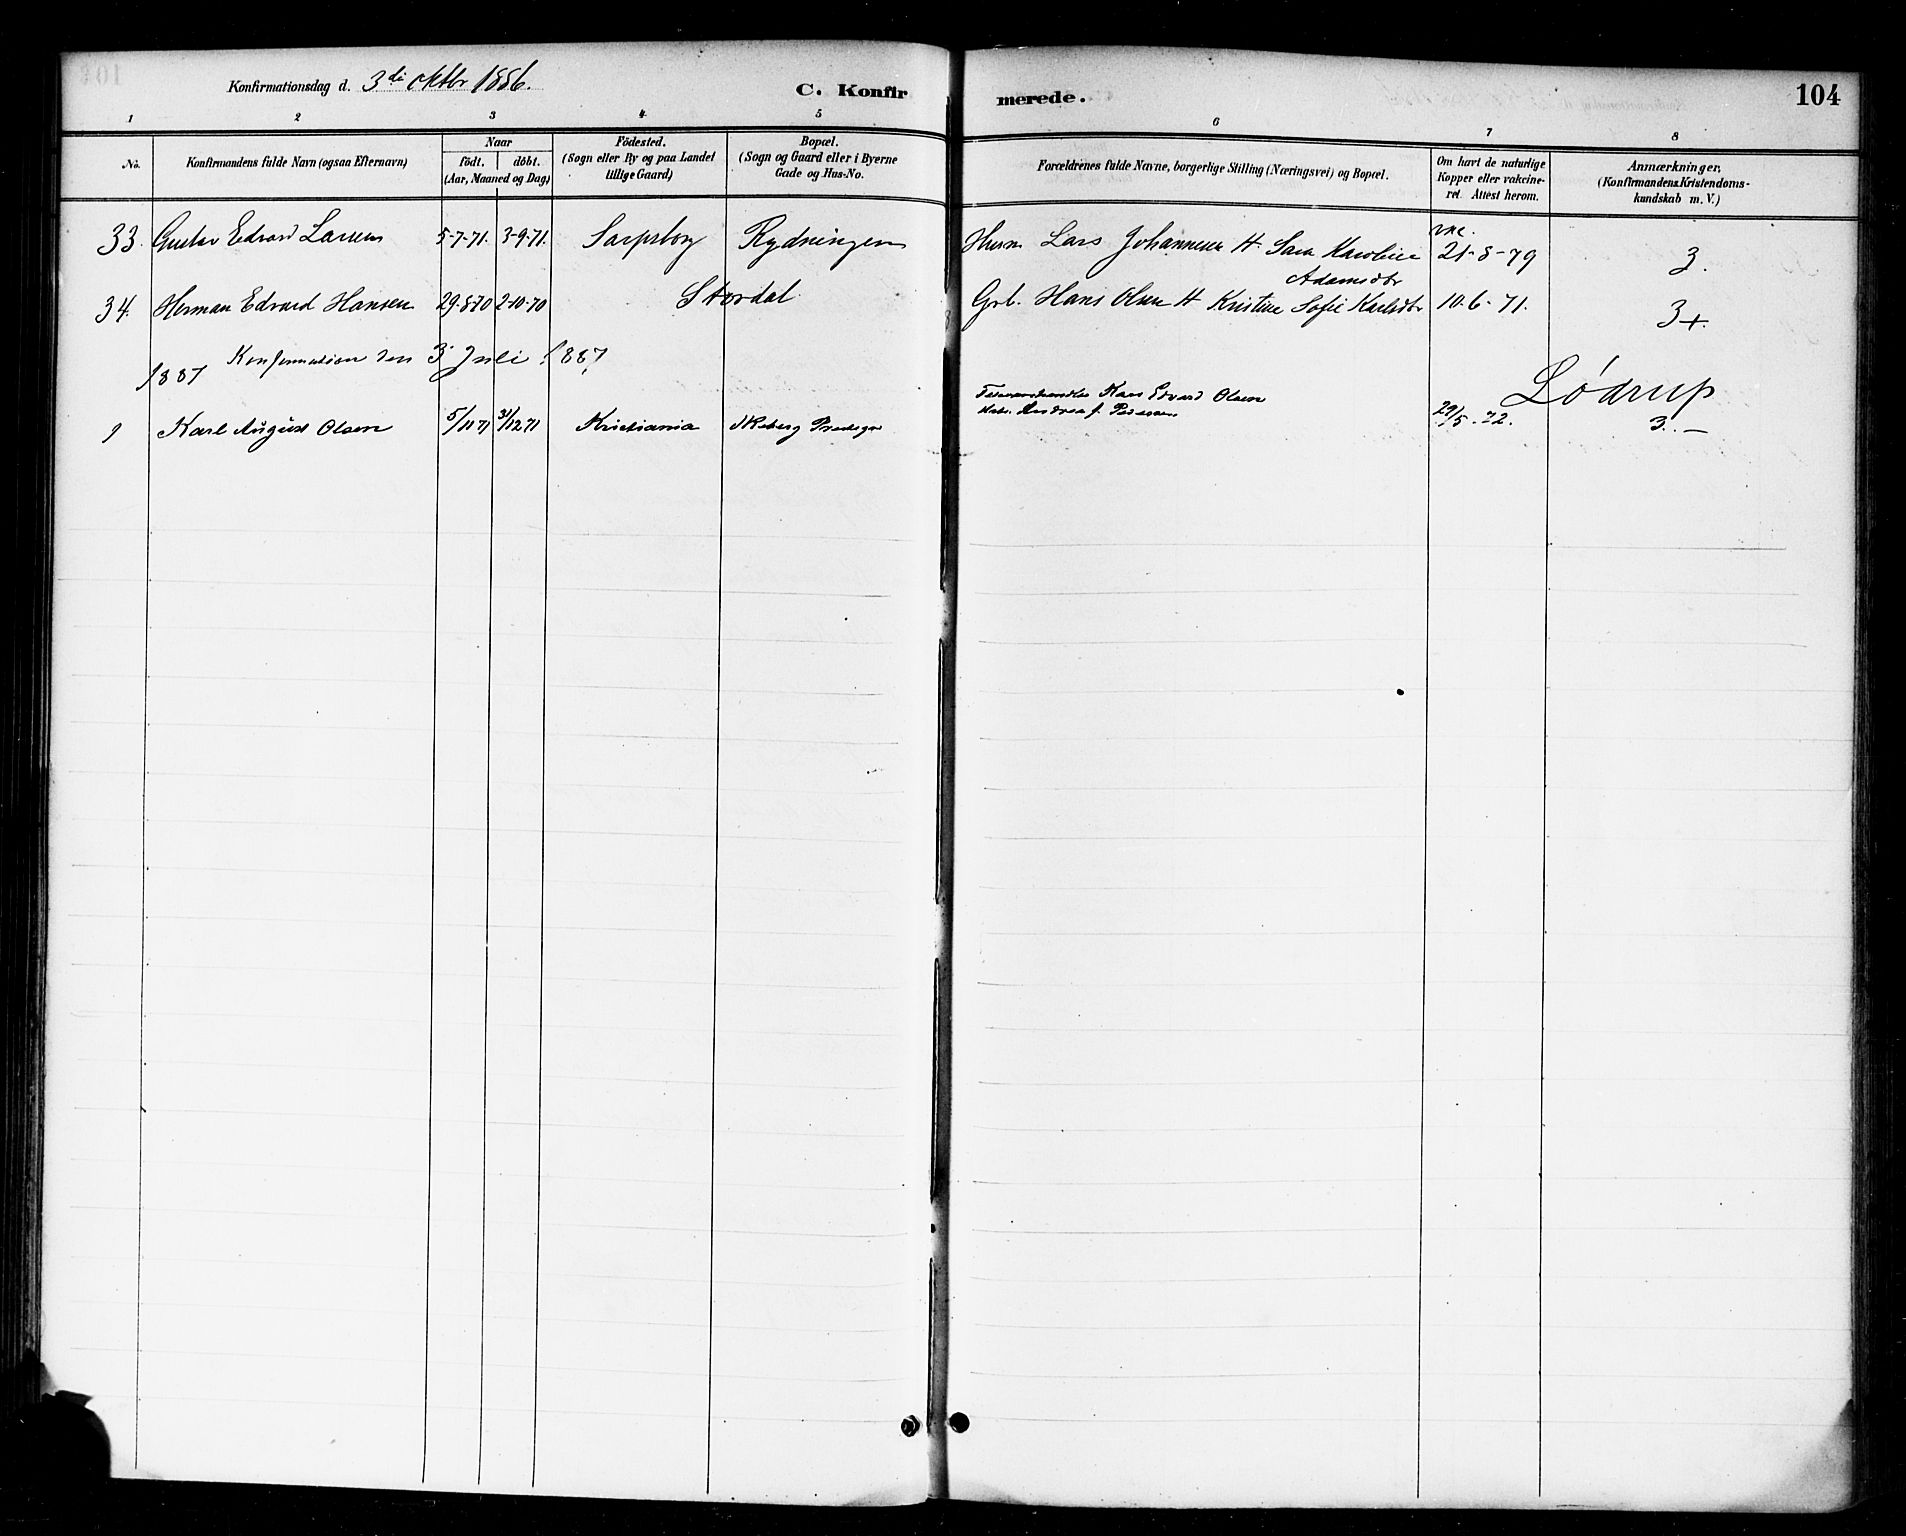 Konfirmationsdag d. 3di oktbr 1886.
C. Konfirmerede.
104
1 2 3 4 5 6 7 8
No.
Konfirmandens fulde Navn (ogsaa Efternavn)
Naar
födt. döbt.
(Aar, Maaned og Dag)
Födested.
(Sogn eller By og paa Landet
tillige Gaard)
Bopæl.
(Sogn og Gaard eller i Byerne
Gade og Hus-No.
Forældrenes fulde Navne, borgerlige Stilling (Næringsvei) og Bopæl.
Om havt de naturlige
Kopper eller vakcine-
ret. Attest herom.
Anmærkninger,
(Konfirmandens Kristendoms-
kundskab m. V.)
33. Gustav Edvard Larsen 5-7-71. 3-9-71. Sarpsborg Rydningen Husm Lars Johannesen H. Sara Karoline Adamsdtr vac. 21-8-79 3.
34. Herman Edvard Hansen 29-8-70 2-10-70 Stordal Grb. Hans Olsen H Kristine Sofie Karlsdtr 10-6-71. 3+.
1887 Konfirmation den 3 Juli 1887
Lödrup
1 Karl August Olsen 5/11 71 31/12 71 Kristiania Skeberg Prestegr Hans Edvard Olsen
Andrea f. Pedersen 29/5-72. 3.-